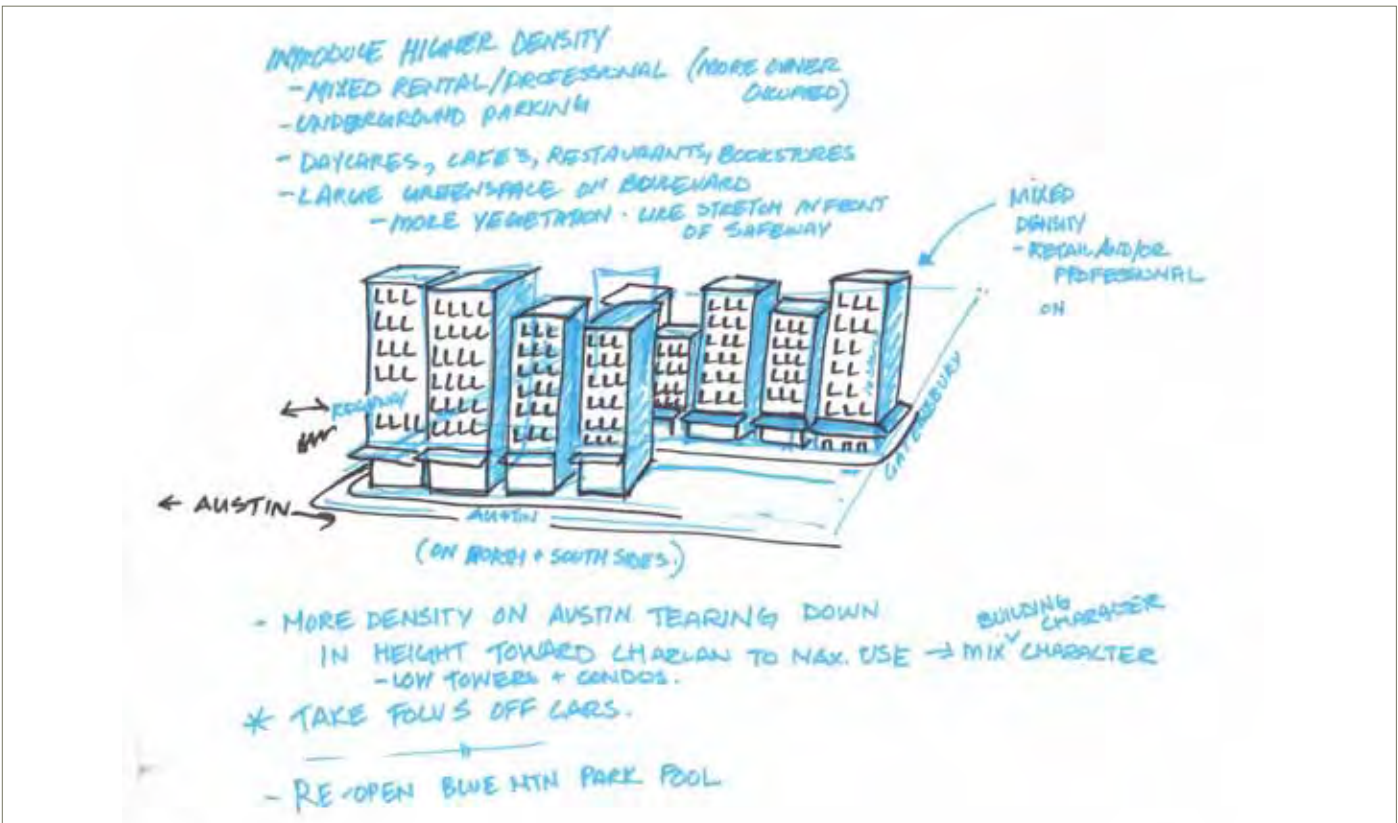 INTRODUCE HIGHER DENSITY
- MIXED RENTAL/PROFESSIONAL (MORE OWNER
OCCUPIED)
- UNDERGROUND PARKING
- DAYCARES, CAFE'S, RESTAURANTS, BOOKSTORES
- LARGE GREENSPACE ON BOULEVARD
- MORE VEGETATION - LIKE STRETCH IN FRONT
OF SAFEWAY
MIXED
DENSITY
- RETAIL AND/OR
PROFESSIONAL
ON
RIDGWAY
GATENSBURY
← AUSTIN
AUSTIN
(ON NORTH + SOUTH SIDES.)
- MORE DENSITY ON AUSTIN TEARING DOWN
BUILDING
CHARACTER
IN HEIGHT TOWARD CHARLAN TO MAX. USE → MIX CHARACTER
- LOW TOWERS + CONDOS.
* TAKE FOCUS OFF CARS.
- RE-OPEN BLUE MTN PARK POOL